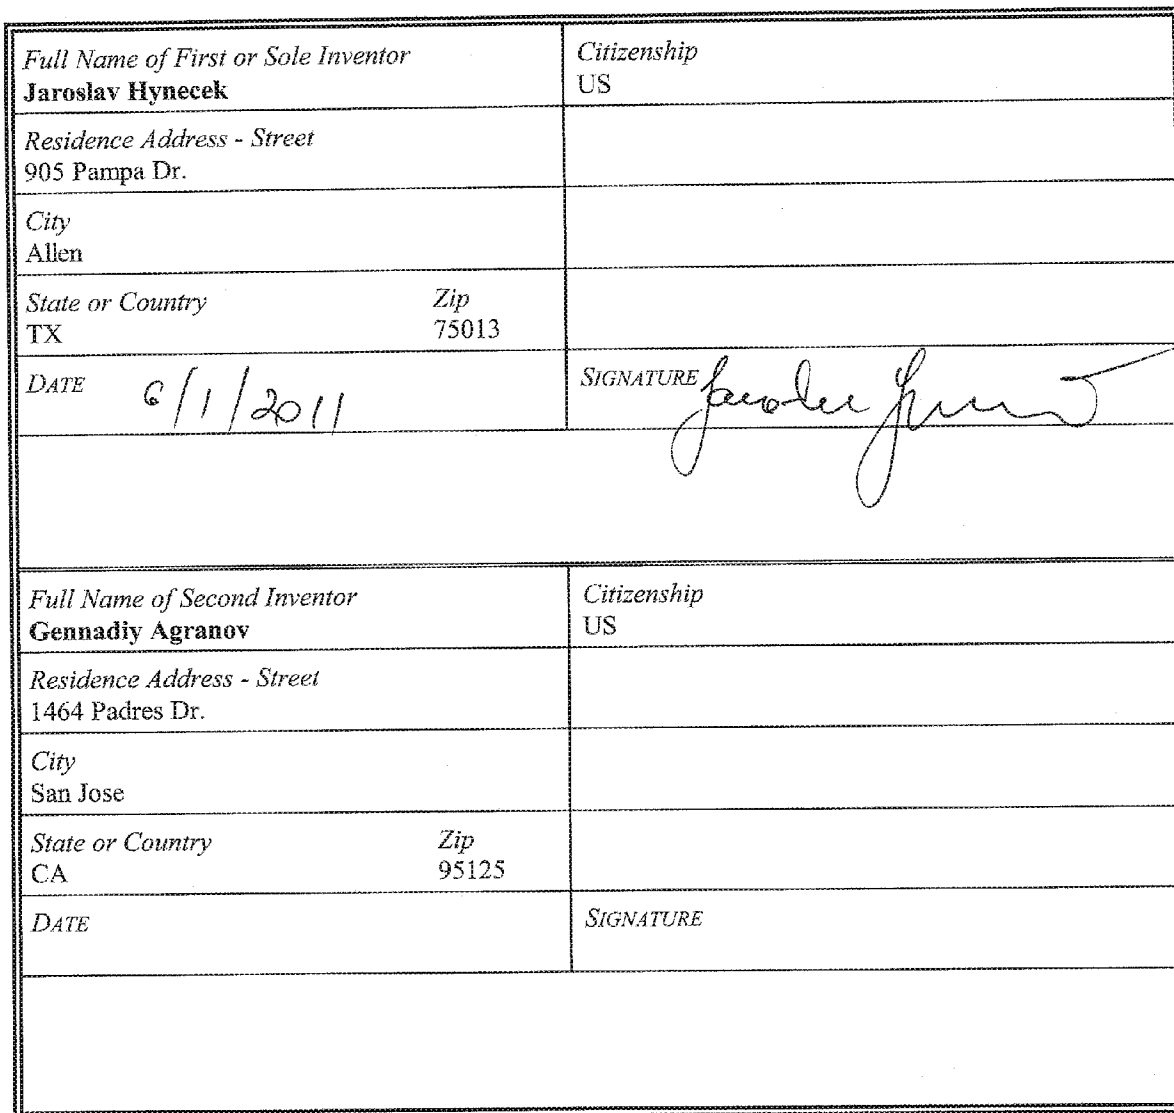 Full Name of First or Sole Inventor
Jaroslav Hynecek
Citizenship
US
Residence Address - Street
905 Pampa Dr.
City
Allen
State or Country Zip
TX 75013
DATE 6/1/2011
SIGNATURE
Full Name of Second Inventor
Gennadiy Agranov
Citizenship
US
Residence Address - Street
1464 Padres Dr.
City
San Jose
State or Country Zip
CA 95125
DATE
SIGNATURE